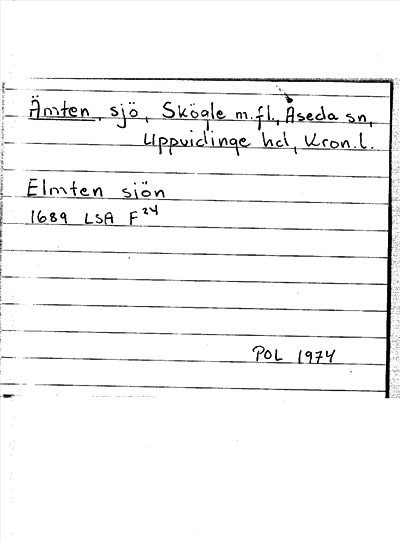 Ämten, sjö, Skögle m.fl., Åseda sn,
Uppvidinge hd, Kron.l.
Elmten sjön
1689 LSA F24
POL 1974